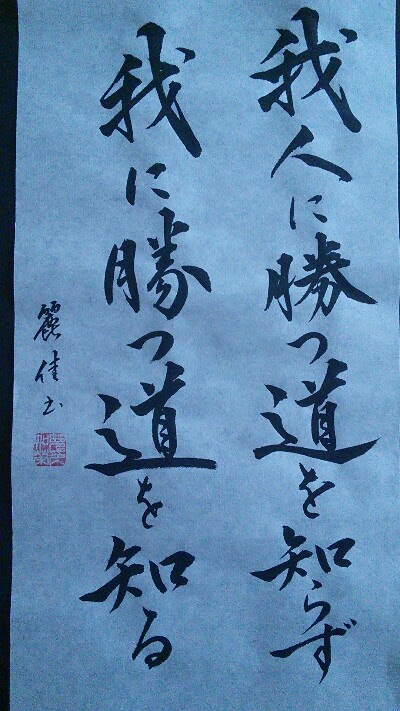 我人に勝つ道を知らず
我に勝つ道を知る
麗佳书